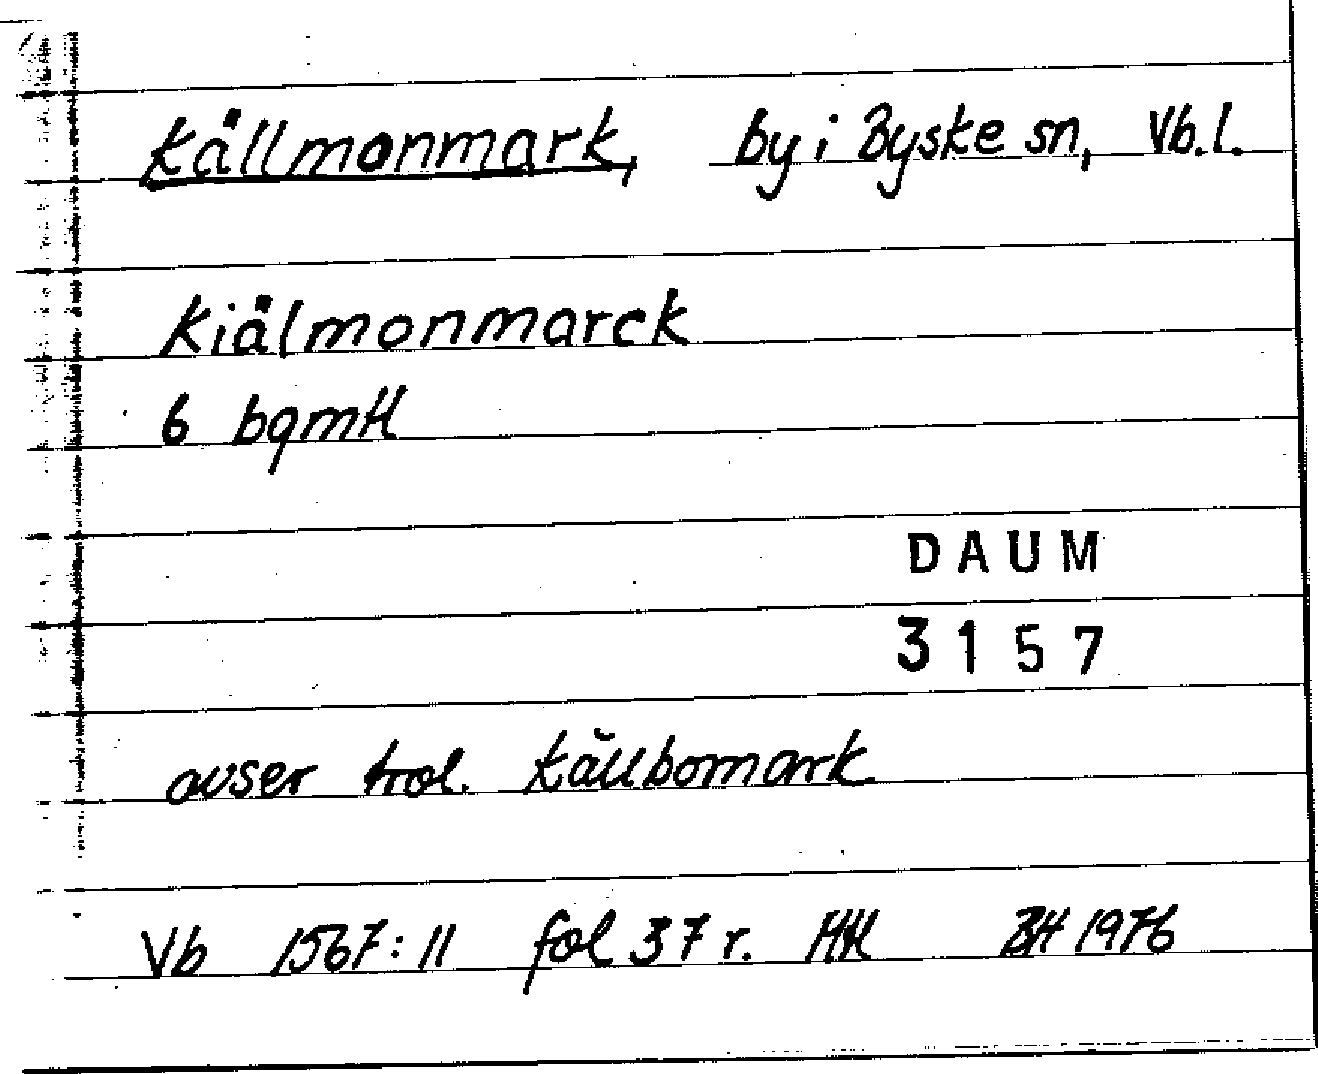 Källmonmark, by i Byske sn, Vb.l.
Kiälmonmarck
6 bqmtl
DAUM
3157
avser trol. Källbomark
Vb 1567:11 fol 37 r. HH BH 1976